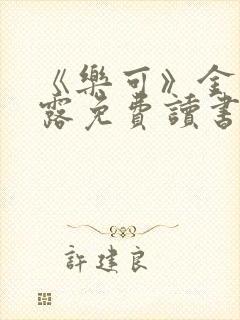 《樂可》金
露免費讀書
許建良